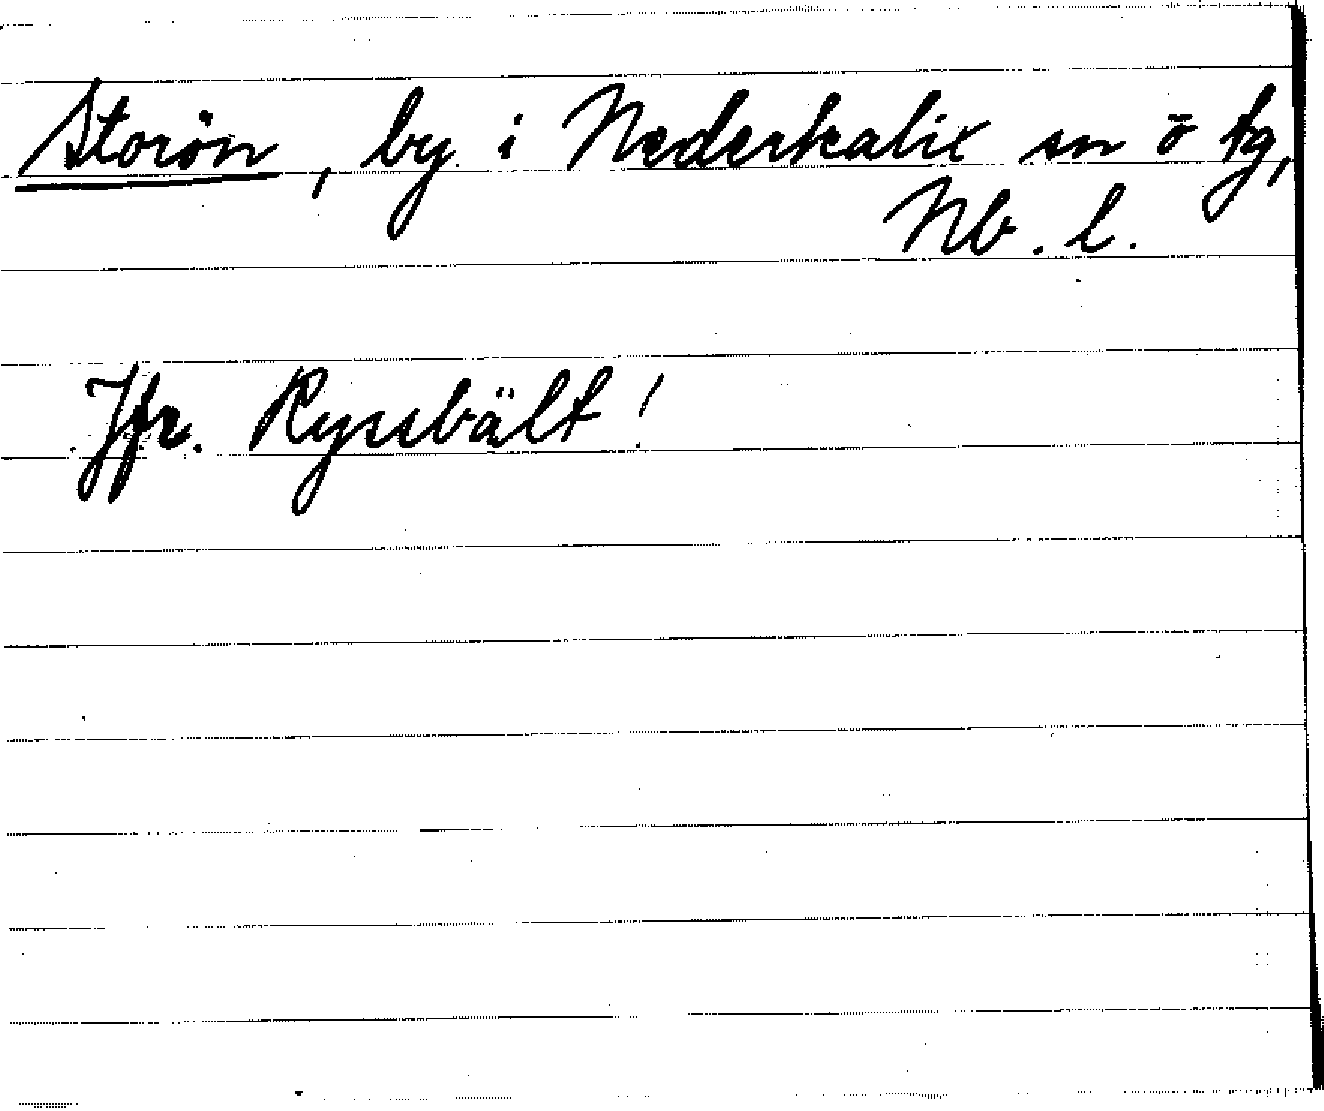 Storön, by i Nederkalix sn o tg,
Nb. l.
Jfr. Ryssbält!